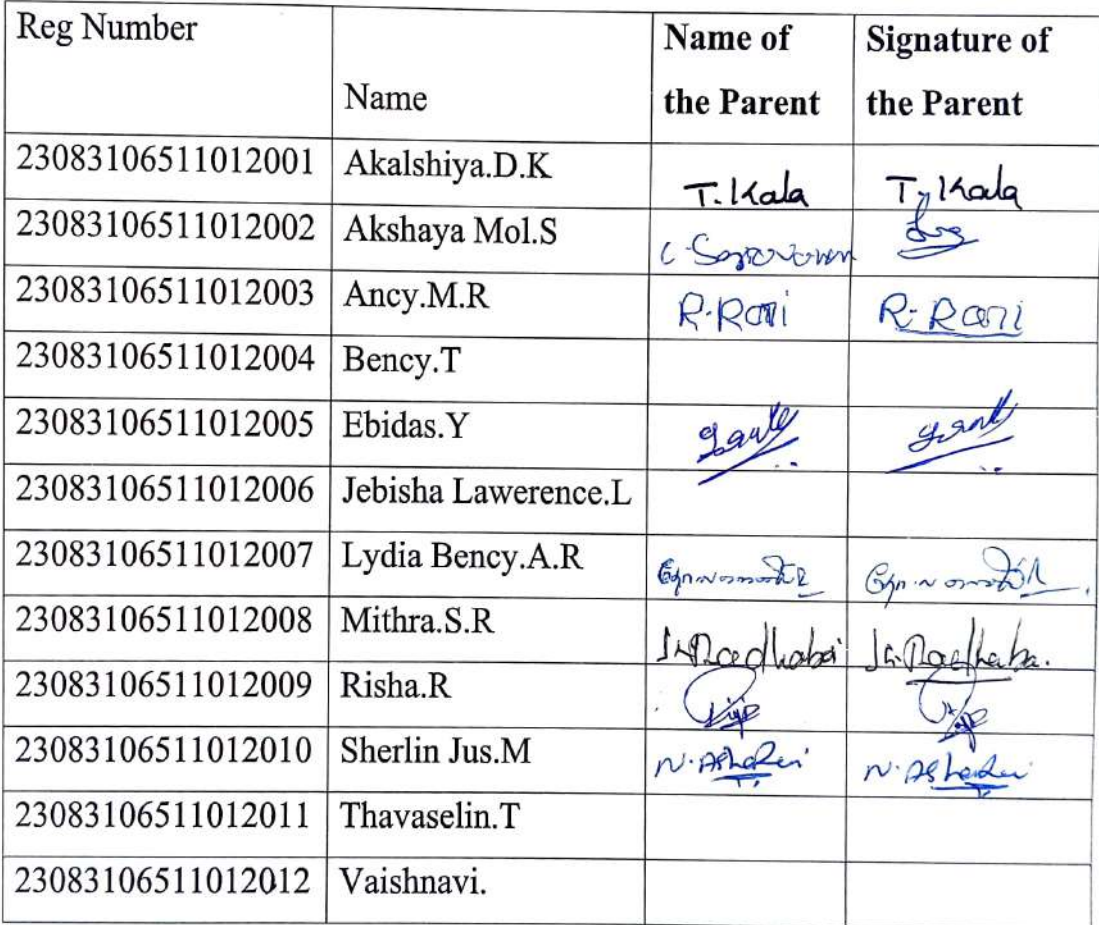 Reg Number Name Name of Signature of
the Parent the Parent
23083106511012001 Akalshiya.D.K T. Kala T. Kala
23083106511012002 Akshaya Mol.S
23083106511012003 Ancy.M.R R. Rani R. Rani
23083106511012004 Bency.T
23083106511012005 Ebidas.Y
23083106511012006 Jebisha Lawerence.L
23083106511012007 Lydia Bency.A.R
23083106511012008 Mithra.S.R
23083106511012009 Risha.R
23083106511012010 Sherlin Jus.M
23083106511012011 Thavaselin.T
23083106511012012 Vaishnavi.